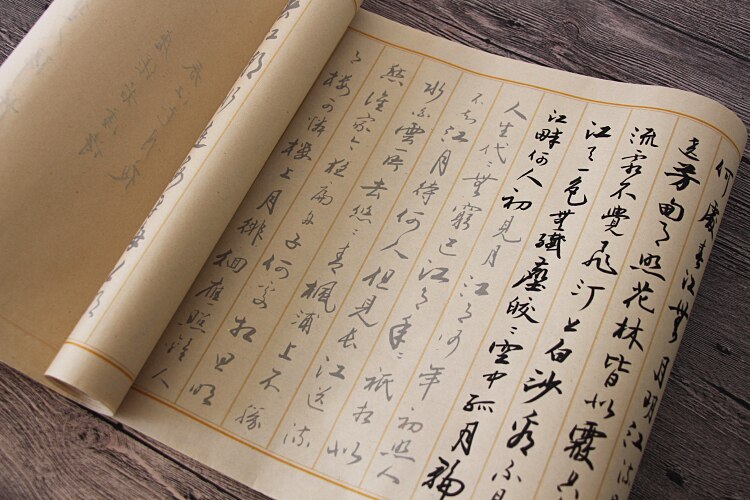 何處春江無月明江流
遶芳甸月照花林皆似霰空
流霜不覺飛汀上白沙看不見
江天一色無纖塵皎々空中孤月輪
江畔何人初見月江月何年初照人
人生代々無窮已江月年々祇相似
不知江月待何人但見長江送流
水白雲一片去悠々青楓浦上不勝
愁誰家今夜扁舟子何處相思明
月樓可憐樓上月徘徊應照離人